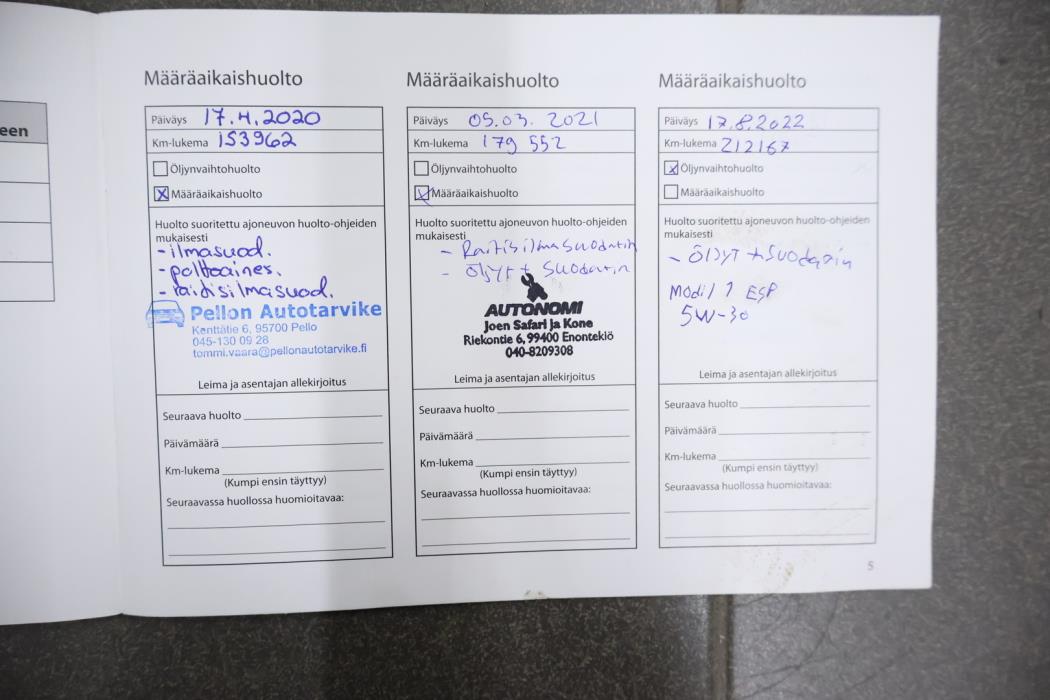 een
Määräaikaishuolto
Päiväys 17.4.2020
Km-lukema 153962
Öljynvaihtohuolto
Määräaikaishuolto
Huolto suoritettu ajoneuvon huolto-ohjeiden
mukaisesti
- ilmasuod.
- polttoaines.
- raitisilmasuod.
Pellon Autotarvike
Kenttätie 6, 95700 Pello
045-130 09 28
tommi.vaara@pellonautotarvike.fi
Leima ja asentajan allekirjoitus
Seuraava huolto
Päivämäärä
Km-lukema
(Kumpi ensin täyttyy)
Seuraavassa huollossa huomioitavaa:
Määräaikaishuolto
Päiväys 05.03.2021
Km-lukema 179 552
Öljynvaihtohuolto
Määräaikaishuolto
Huolto suoritettu ajoneuvon huolto-ohjeiden
mukaisesti
- Raitisilmasuodatin
- Öljyt + suodatin
AUTONOMI
Joen Safari ja Kone
Riekontie 6, 99400 Enontekiö
040-8209308
Leima ja asentajan allekirjoitus
Seuraava huolto
Päivämäärä
Km-lukema
(Kumpi ensin täyttyy)
Seuraavassa huollossa huomioitavaa:
Määräaikaishuolto
Päiväys 17.8.2022
Km-lukema 212167
Öljynvaihtohuolto
Määräaikaishuolto
Huolto suoritettu ajoneuvon huolto-ohjeiden
mukaisesti
- Öljyt + suodatin
Mobil 1 ESP
5W-30
Leima ja asentajan allekirjoitus
Seuraava huolto
Päivämäärä
Km-lukema
(Kumpi ensin täyttyy)
Seuraavassa huollossa huomioitavaa:
5